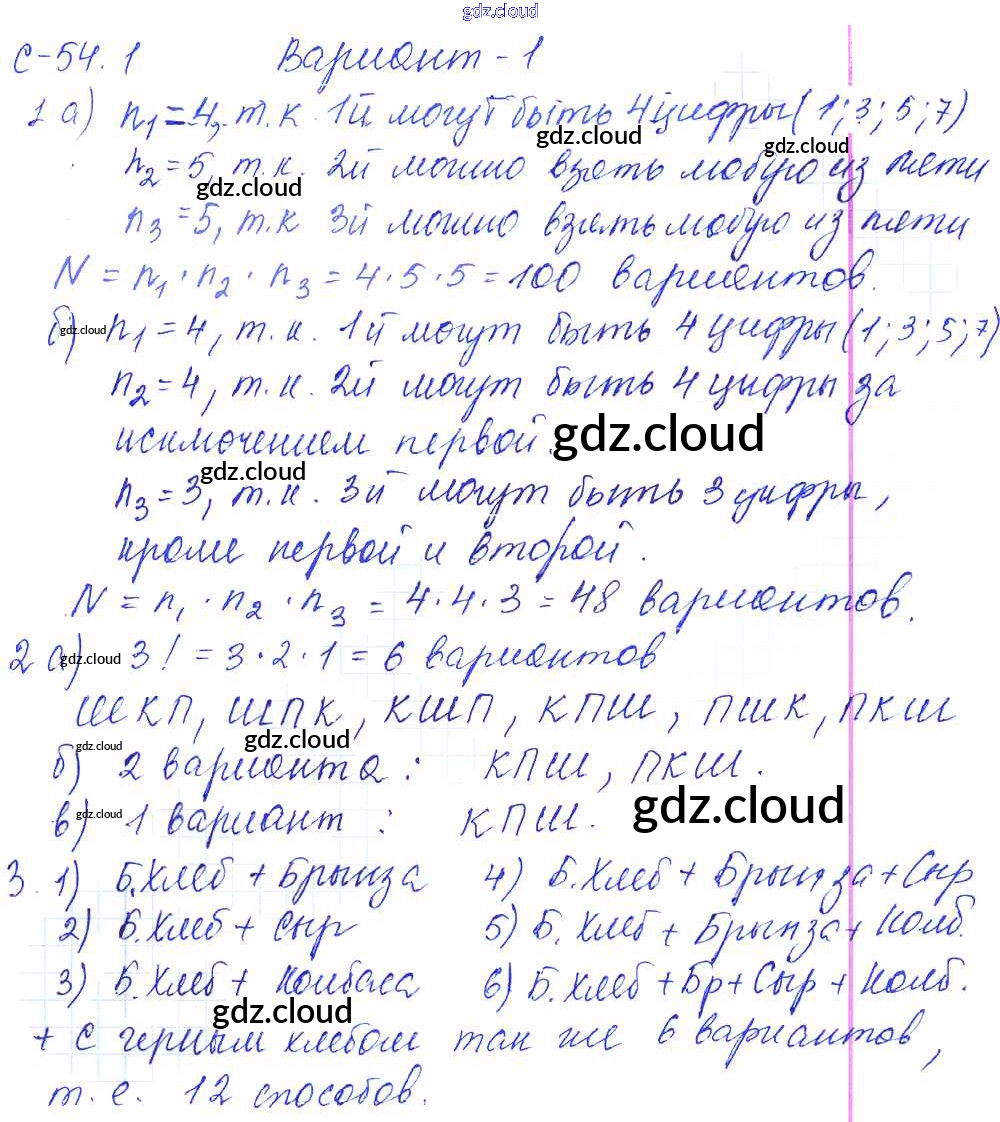 gdz.cloud
С-54.1 Вариант-1
1 а) n₁=4, т.к. 1й могут быть 4 цифры (1; 3; 5; 7)
gdz.cloud gdz.cloud
n₂=5, т.к. 2й можно взять любую из пяти
gdz.cloud
n₃=5, т.к 3й можно взять любую из пяти
N = n₁ · n₂ · n₃ = 4 · 5 · 5 = 100 вариантов.
б) gdz.cloud n₁=4, т.к. 1й могут быть 4 цифры (1; 3; 5; 7)
n₂=4, т.к. 2й могут быть 4 цифры за
исключением первой. gdz.cloud
gdz.cloud
n₃=3, т.к. 3й могут быть 3 цифры,
кроме первой и второй.
N = n₁ · n₂ · n₃ = 4·4·3 = 48 вариантов.
2 а) gdz.cloud 3! = 3·2·1 = 6 вариантов
ШКП, ШПК, КШП, КПШ, ПШК, ПКШ
gdz.cloud gdz.cloud
б) 2 варианта: КПШ, ПКШ.
в) gdz.cloud 1 вариант: КПШ. gdz.cloud
3. 1) Б.Хлеб + Брынза 4) Б.Хлеб + Брынза + Сыр
2) Б.Хлеб + Сыр 5) Б.Хлеб + Брынза + Колб.
3) Б.Хлеб + Колбаса 6) Б.Хлеб + Бр + Сыр + Колб.
gdz.cloud
+ С черным хлебом так же 6 вариантов,
т.е. 12 способов.